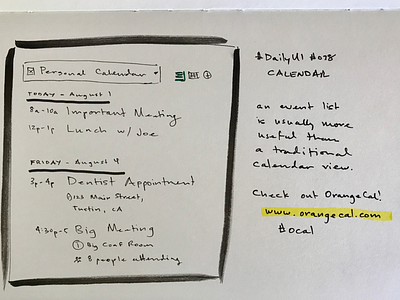 Personal Calendar
TODAY - August 1
8a-10a Important Meeting
12p-1p Lunch w/ Joe
FRIDAY - August 4
3p-4p Dentist Appointment
8123 Main Street,
Tustin, CA
4:30p-5 Big Meeting
Big Conf Room
8 people attending
#DailyUI #038
CALENDAR
an event list
is usually more
useful than
a traditional
calendar view.
Check out OrangeCal!
www.orangecal.com
#ocal